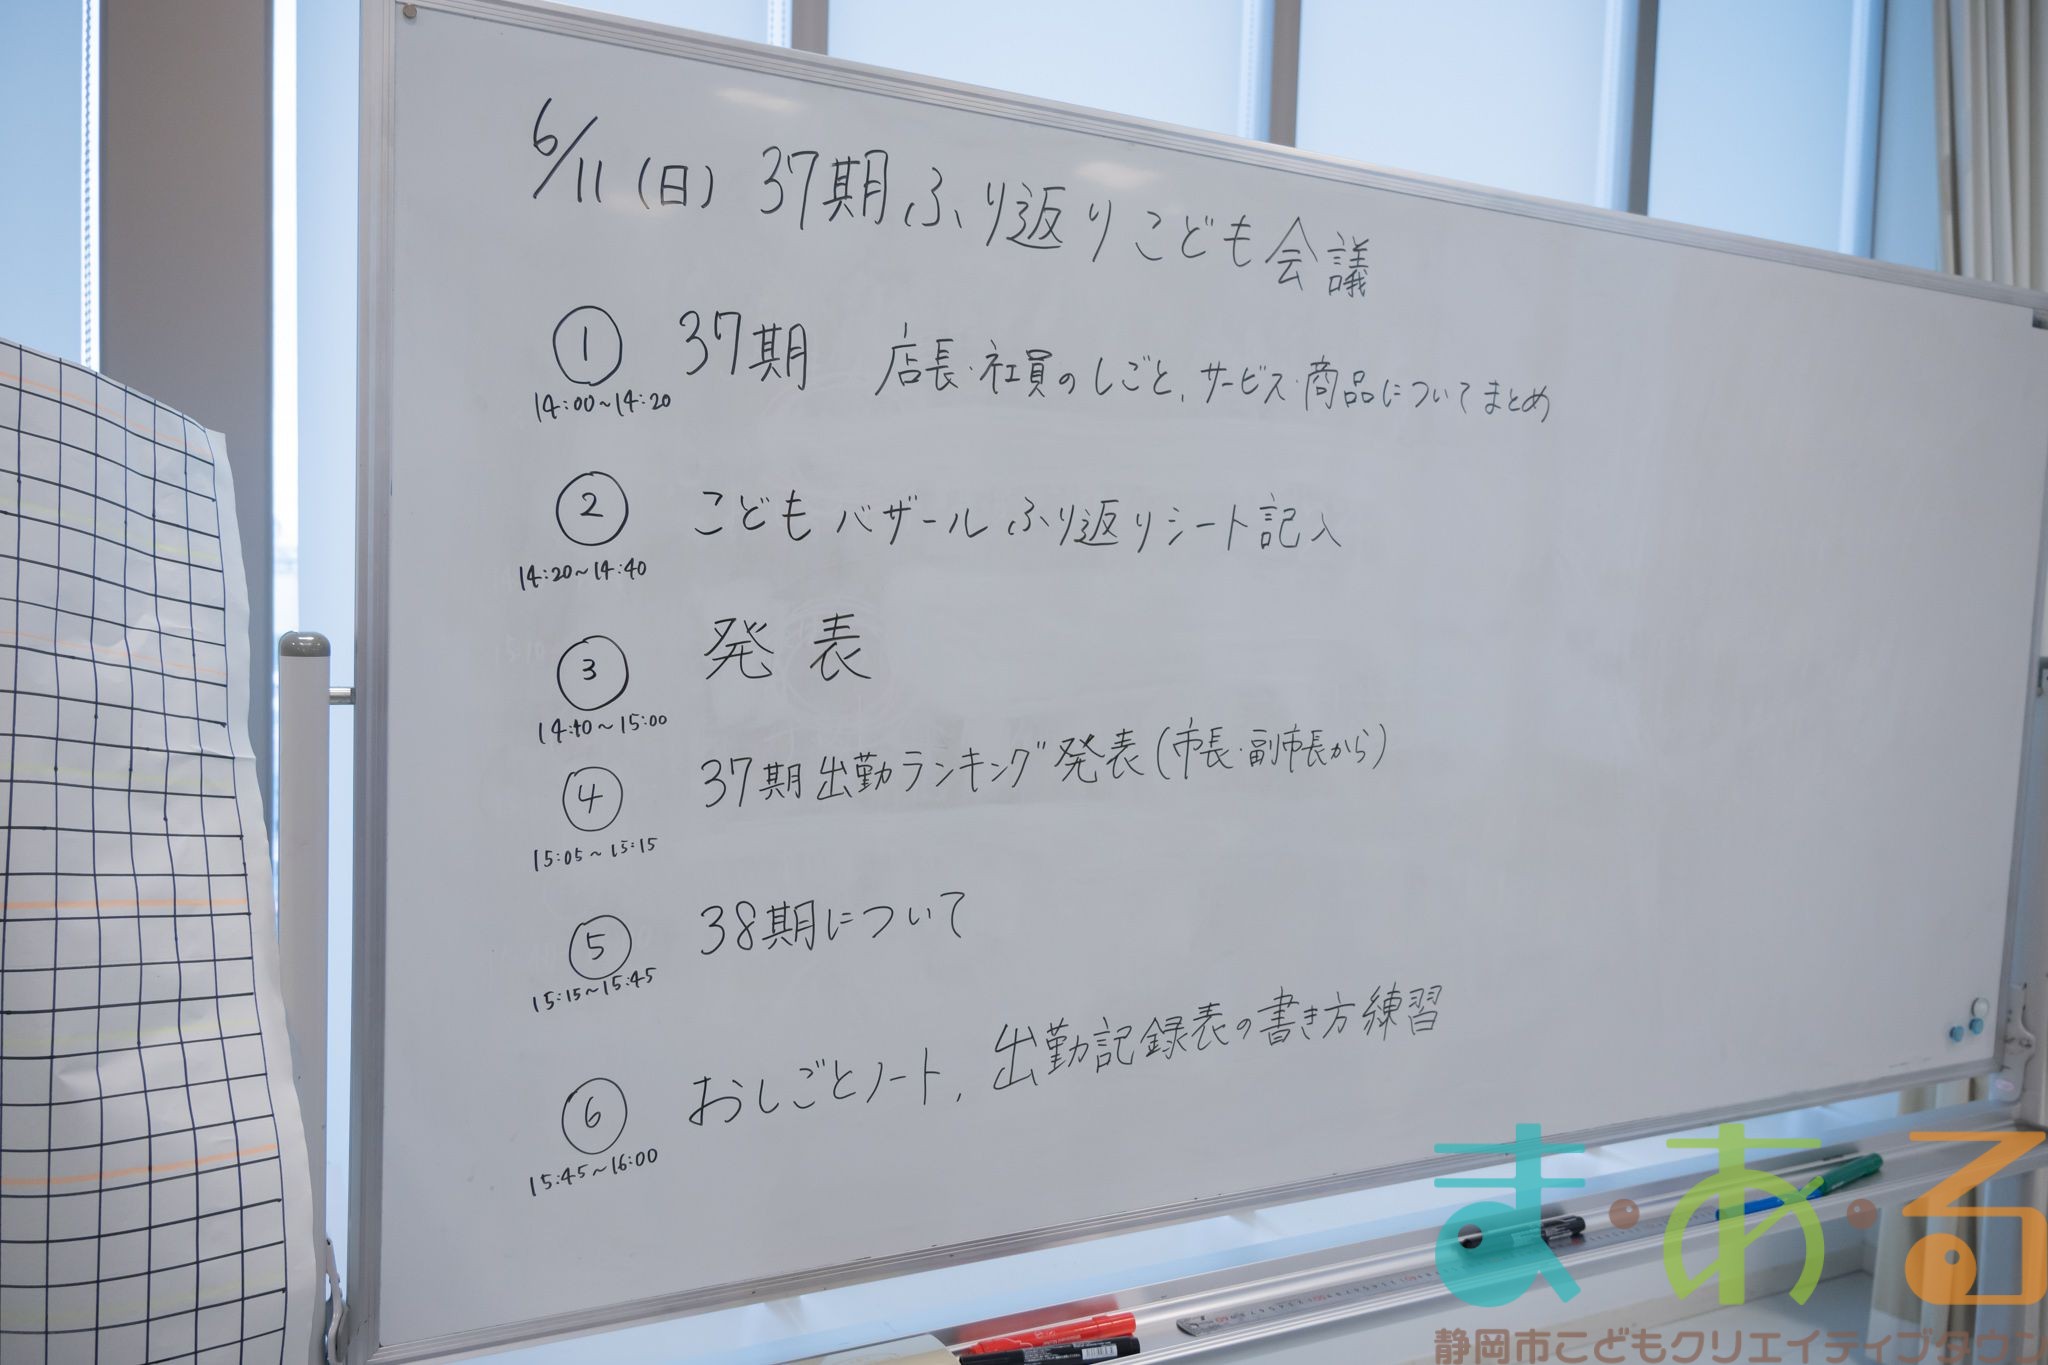 6/11(日) 37期ふり返りこども会議
① 37期 店長・社員のしごと、サービス・商品についてまとめ
14:00~14:20
② こどもバザールふり返りシート記入
14:20~14:40
③ 発表
14:40~15:00
④ 37期出勤ランキング発表(市長・副市長から)
15:05~15:15
⑤ 38期について
15:15~15:45
⑥ おしごとノート、出勤記録表の書き方練習
15:45~16:00
ま・あ・る
静岡市こどもクリエイティブタウン